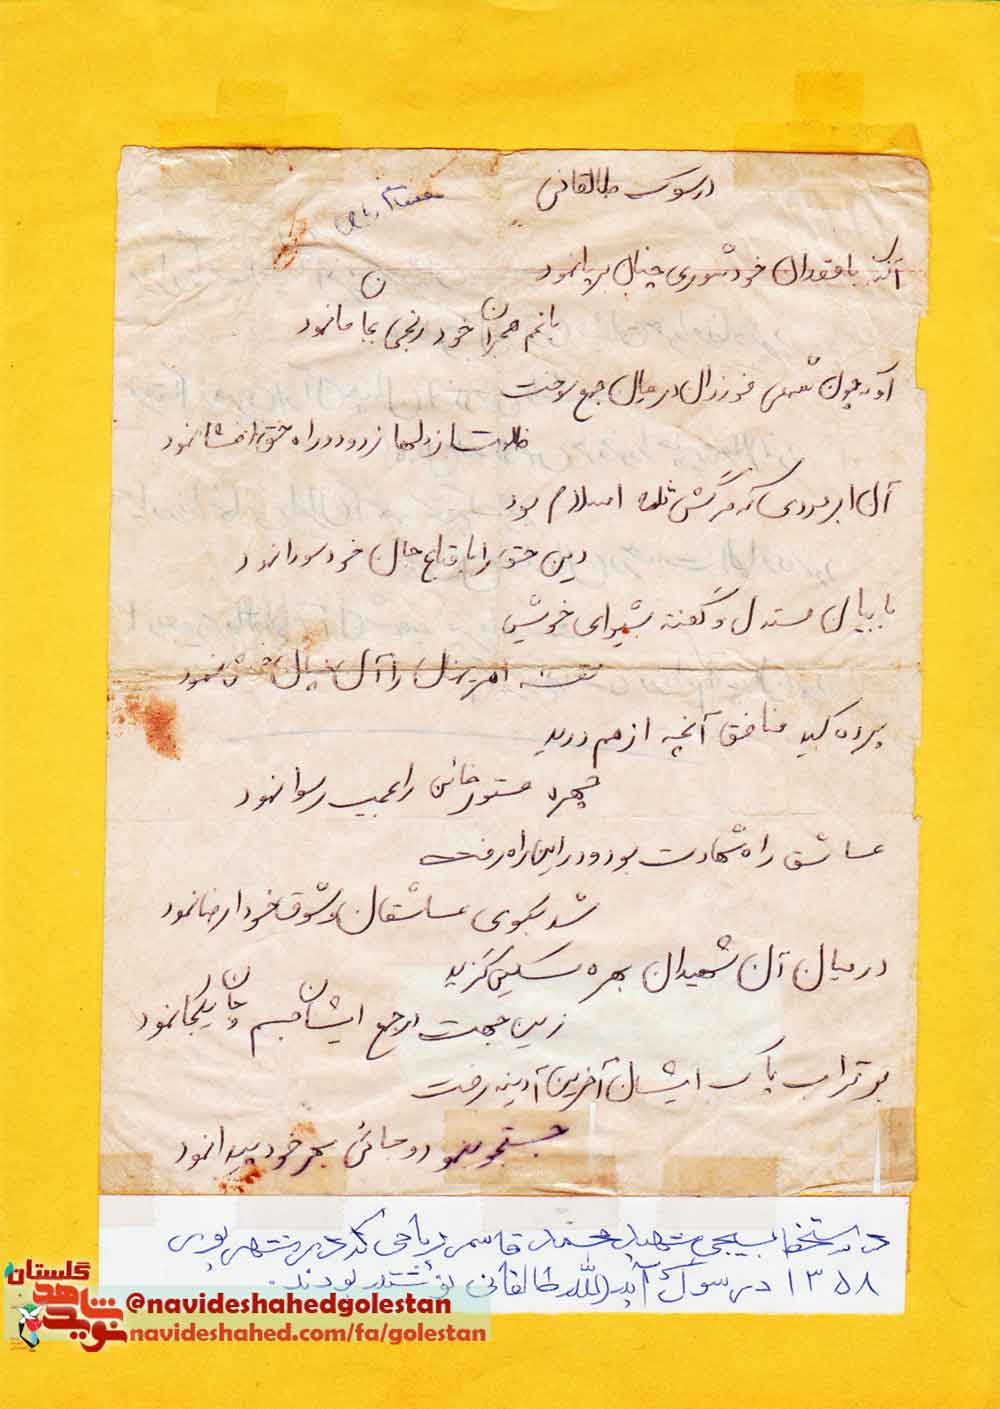 در سوک طالقانی
آنکه با فقدان خود شوری چنان برپا نمود
با غم هجران خود رنجی بجا ما نمود
او که چون شمعی فروزان در میان جمع سوخت
ظلمت از دلها زدود و راه حق افشا نمود
آن ابرمردی که مرگش ثلمه اسلام بود
دین حق را با قناع جان خود سودا نمود
با بیان مستدل و گفته شیوای خویش
نقشه اهریمنان را آن خان نمود
پرده کید منافق آنچه از هم درید
چهره مستور خائن را عجیب رسوا نمود
عاشق راه شهادت بود و در این راه رفت
شد بکوی عاشقان و شوق خود ارضا نمود
در میان آن شهیدان بهره سکنی گزید
زین جهت ارجع ایشان جسم و جان یکجا نمود
بر تراب پاک ایشان آخرین آدینه رفت
جستجو بنمود و جائی بهر خود پیدا نمود
دستخط بسیجی شهید محمد قاسم ریاحی که در شهریور
۱۳۵۸ در سوک آیت الله طالقانی نوشته بودند.
نوید شاهد گلستان
@navideshahedgolestan
navideshahed.com/fa/golestan